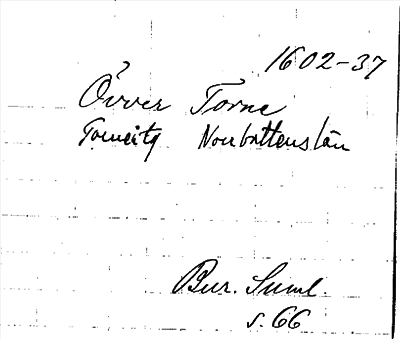 1602-37
Övver Torne
Torneitz Norrbottenslän
Bur. Suml.
s. 66